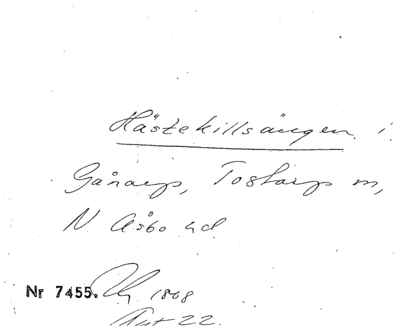 Hästekillsängen i
Gånarp, Tostarp m,
N Åsbo hd
Nr 7455. 1808
Akt 22.